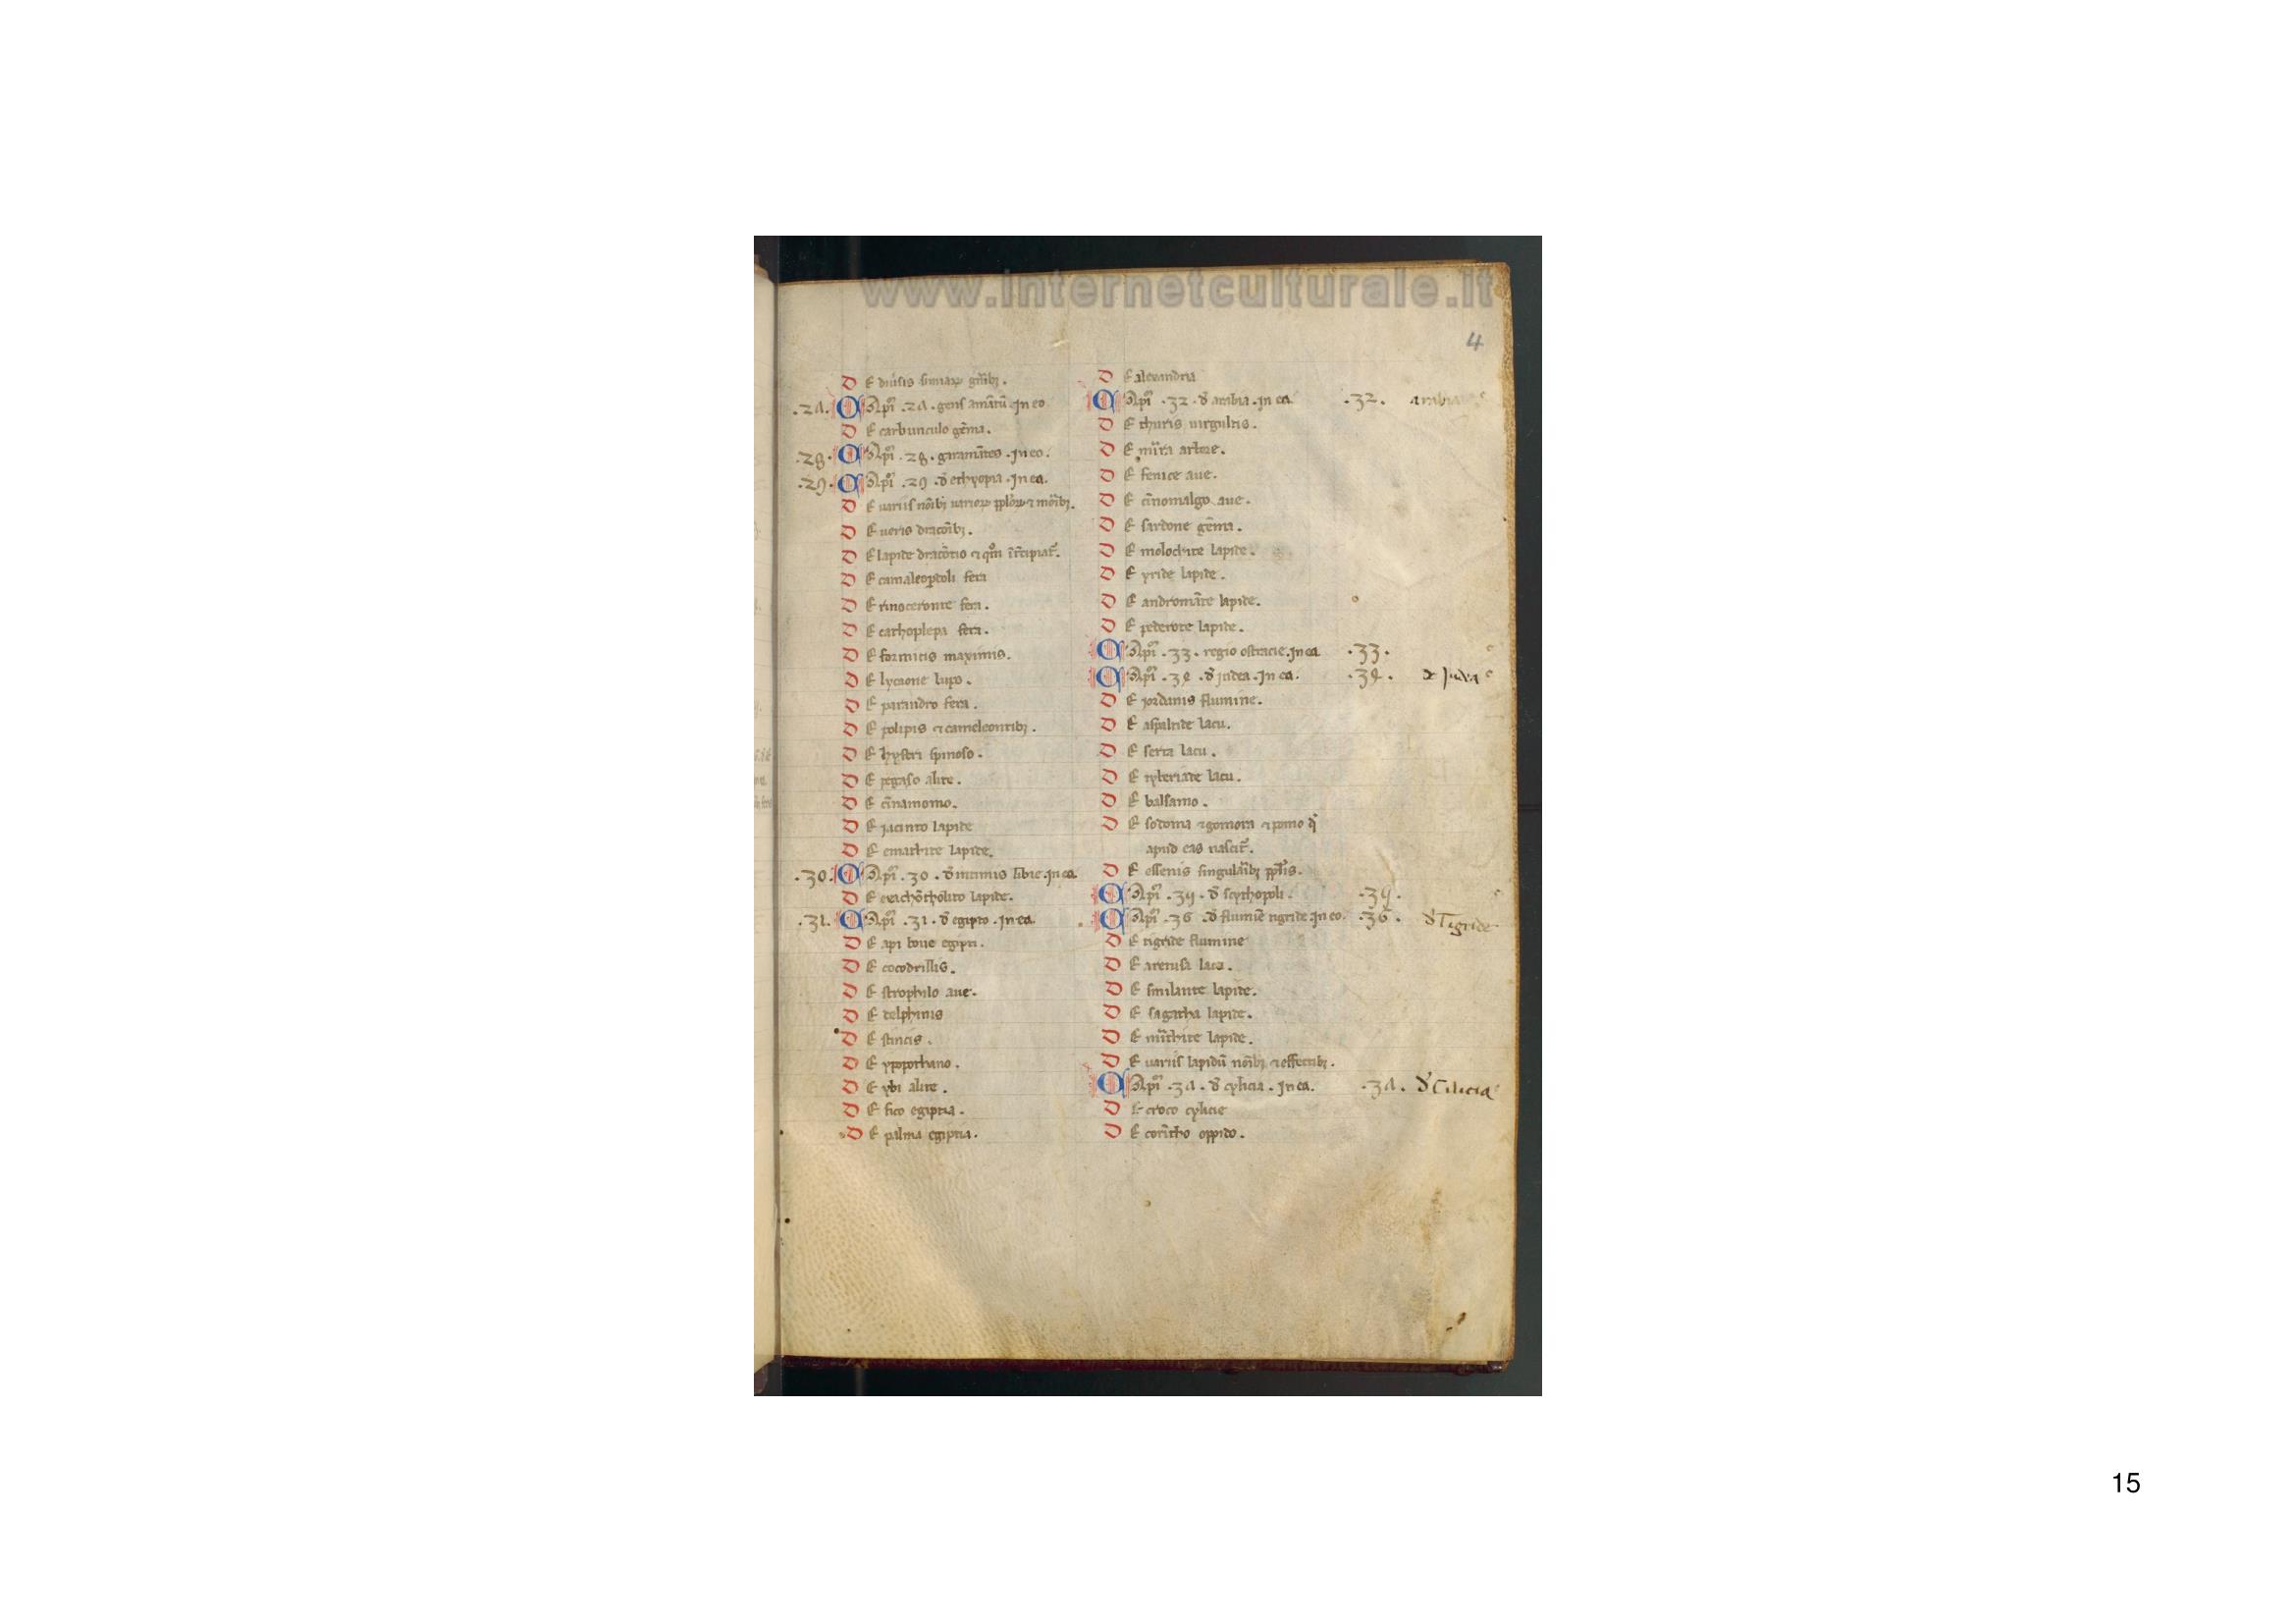 www.internetculturale.it
4
DE diu̾sis simiaꝝ gn̄ibꝫ.
.2Λ. CApꝉ̾m .2Λ. gens amātū. In eo
DE carbunculo gēma.
.28. CApꝉ̾m .28. garamātes. In eo.
.29. CApꝉ̾m .29. đ ethyopia. In ea.
DE variis nōibꝫ varioꝝ ppl̾oꝝ ⁊ mōribꝫ.
DE veris dracōibꝫ.
DE lapide dracōtio ⁊ qm̊
DE camaleopardoli fera
DE rinoceronte fera.
DE cathoplepa fera.
DE formicis maximis.
DE lycaone lupo.
DE parandro fera.
DE polipis ⁊ cameleontibꝫ.
DE hystri spinoso.
DE pegaso alite.
DE cīnamomo.
DE jacinto lapide
DE emathite lapide.
.30. CApꝉ̾m .30. đ intimis libie. In ea
DE lapide.
.31. CApꝉ̾m .31. đ egipto. In ea.
DE api boue egipti.
DE cocodrillis.
DE strophilo aue.
DE delphinis
DE stincis.
DE ypopothano.
DE ybi alite.
DE fico egiptia.
DE palma egiptia.
DE alexandria
CApꝉ̾m .32. đ arabia. In ea. .32. arabia
DE thuris virgultis.
DE mirra arbore.
DE fenice aue.
DE cīnomalgo aue.
DE sardone gēma.
DE molochite lapide.
DE yride lapide.
DE andromāte lapide.
DE pederote lapide.
CApꝉ̾m .33. regio ostracie. In ea .33.
CApꝉ̾m .3ꝝ. đ judea. In ea. .3ꝝ. de Judea
DE jordanis flumine.
DE aspaltide lacu.
DE serra lacu.
DE tyberiade lacu.
DE balsamo.
DE sodoma ⁊ gomora ⁊ pomo q̄
apud eas nascit̾.
DE essenis singularibꝫ ppl̾is.
CApꝉ̾m .3ɥ. đ scythopoli. .3ɥ.
CApꝉ̾m .36. đ flumīe tigride. In eo. .36. đ Tigride
DE tigride flumine
DE aretusa lacu.
DE smilante lapide.
DE sagatha lapide.
DE mīthite lapide.
DE variis lapidū nōibꝫ ⁊ effectibꝫ.
CApꝉ̾m .3Λ. đ cylicia. In ea. .3Λ. đ Cilicia
DE croco cylicie
DE corītho oppido.
15